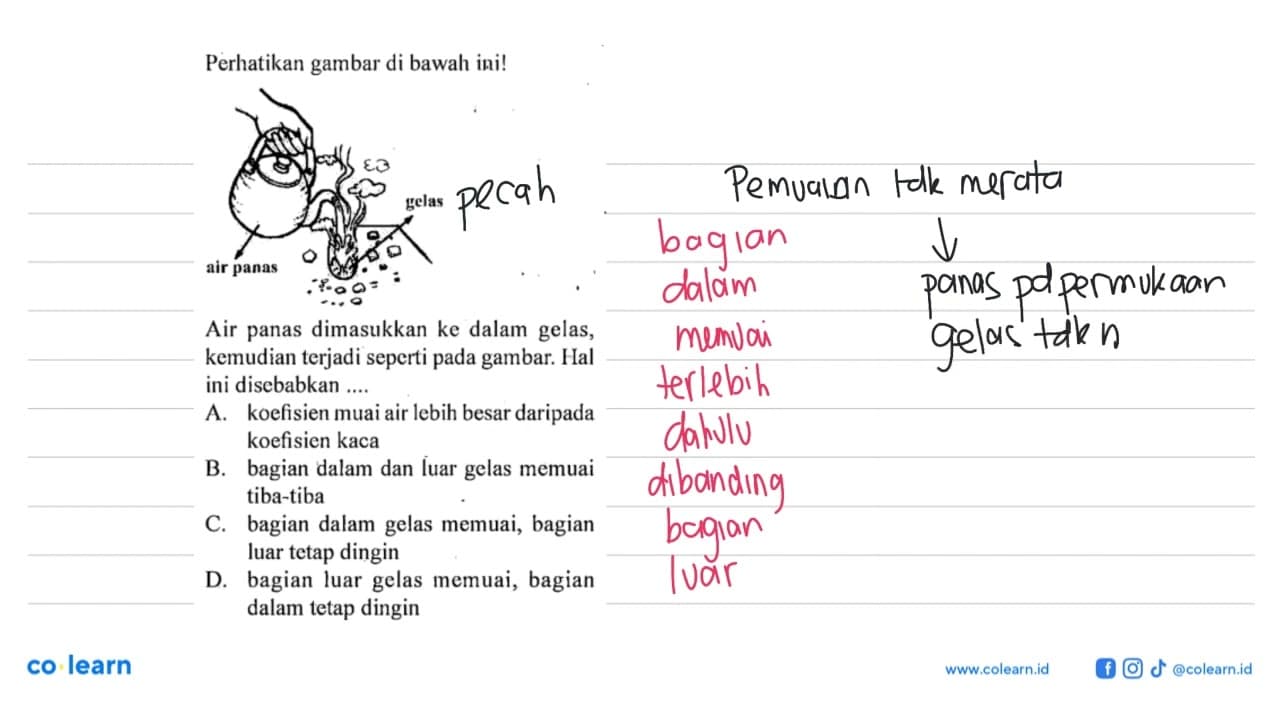 Perhatikan gambar di bawah ini!
gelas pecah
air panas
Air panas dimasukkan ke dalam gelas,
kemudian terjadi seperti pada gambar. Hal
ini disebabkan ....
A. koefisien muai air lebih besar daripada
koefisien kaca
B. bagian dalam dan luar gelas memuai
tiba-tiba
C. bagian dalam gelas memuai, bagian
luar tetap dingin
D. bagian luar gelas memuai, bagian
dalam tetap dingin
Pemuaian tdk merata
bagian
dalam
memuai
terlebih
dahulu
dibanding
bagian
luar
panas pd permukaan
gelas tdk n
co learn
www.colearn.id
@colearn.id